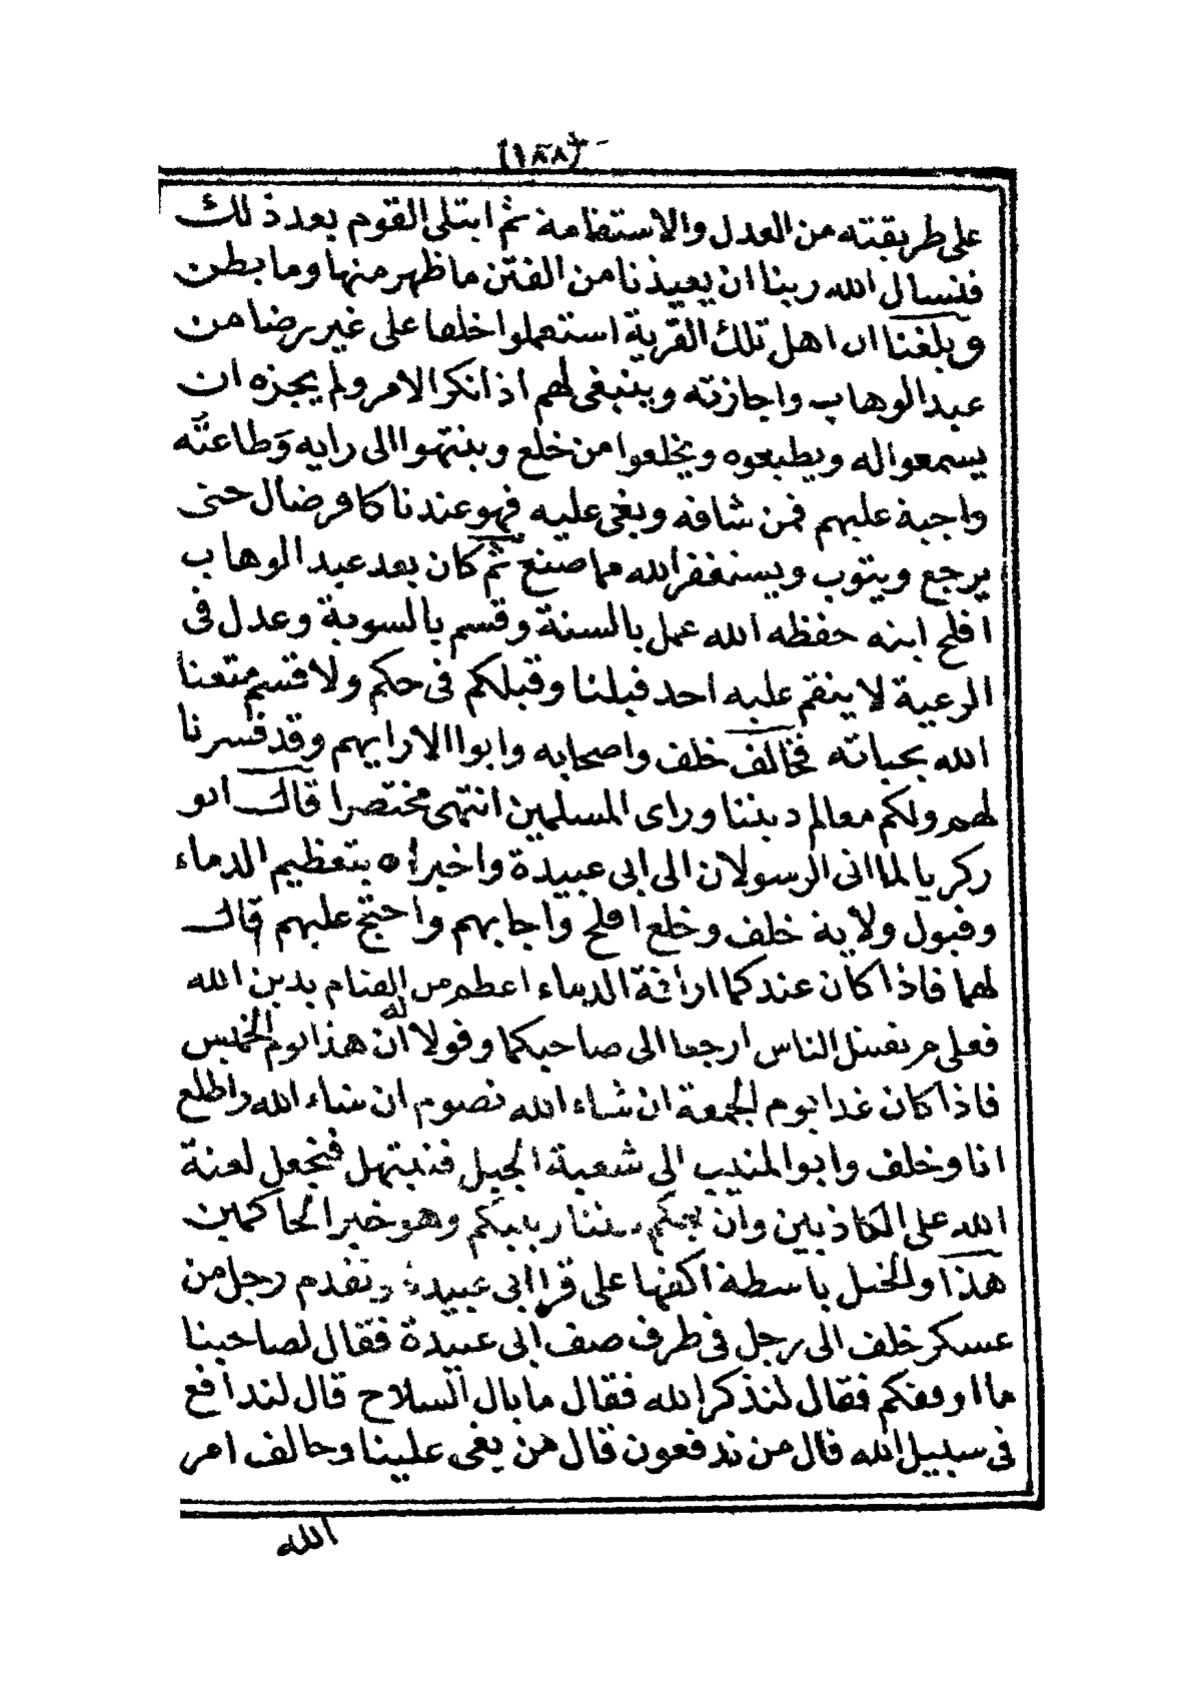 (١٨٨)
على طريقته من العدل والاستقامة ثم ابتلى القوم بعد ذلك
فنسال الله ربنا ان يعيذنا من الفتن ما ظهر منها وما بطن
وبلغنا ان اهل تلك القرية استعملوا خلفا على غير رضا من
عبد الوهاب واجازته وينبغى لهم اذ انكر الامر ولم يجزه ان
يسمعوا له ويطيعوه ويخلعوا من خلع وينتهوا الى رايه وطاعته
واجبة عليهم فمن شاقه وبغى عليه فهو عندنا كافر ضال حتى
يرجع ويتوب ويستغفر الله مما صنع ثم كان بعد عبد الوهاب
افلح ابنه حفظه الله عمل بالسنة وقسم بالسوية وعدل فى
الرعية لا ينقم عليه احد قبلنا وقبلكم فى حكم ولا قسم متعنا
الله بحياته فخالف خلف واصحابه وابوا الا رايهم وقد فسرنا
لهم ولكم معالم ديننا وراى المسلمين انتهى مختصرا قال ابو
زكريا لما اتى الرسولان الى ابى عبيدة واخبراه بتعظيم الدماء
وقبول ولاية خلف وخلع افلح واجابهم واحتج عليهم قال
لهما فاذا كان عندكما اراقة الدماء اعظم من القيام بدين الله
فعلى م يقتل الناس ارجعا الى صاحبكما وقولا له ان هذا يوم الخميس
فاذا كان غدا يوم الجمعة ان شاء الله نصوم ان شاء الله واطلع
انا وخلف وابو المنيب الى شعبة الجبل فنبتهل فنجعل لعنة
الله على الكاذبين وان يحكم بيننا ربنا وهو خير الحاكمين
هذا والخيل باسطة اكفها على قرا ابى عبيدة وتقدم رجل من
عسكر خلف الى رجل فى طرف صف ابى عبيدة فقال لصاحبنا
ما اوقفكم فقال لنذكر الله فقال ما بال السلاح قال لندافع
فى سبيل الله قال من تدفعون قال من بغى علينا وخالف امر
الله